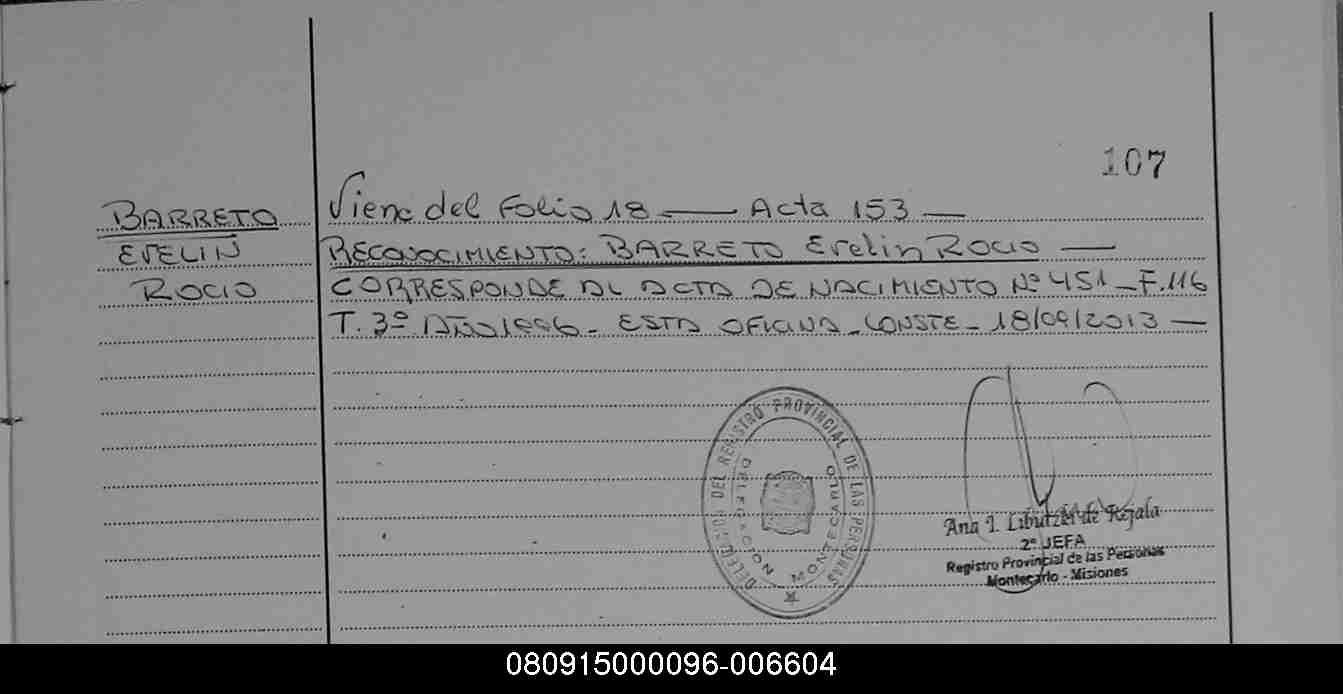 107
BARRETO
EVELIN
ROCIO
Viene del Folio 18 — Acta 153 —
RECONOCIMIENTO: BARRETO Evelin ROCIO —
CORRESPONDE AL ACTA DE NACIMIENTO Nº 451 - F. 116
T. 3º AÑO 1996 - ESTA OFICINA - CONSTE - 18/09/2013 —
DELEGACION DEL REGISTRO PROVINCIAL DE LAS PERSONAS
DELEGACION MONTECARLO
Ana I. de Rejala
2º JEFA
Registro Provincial de las Personas
Montecarlo - Misiones
080915000096-006604